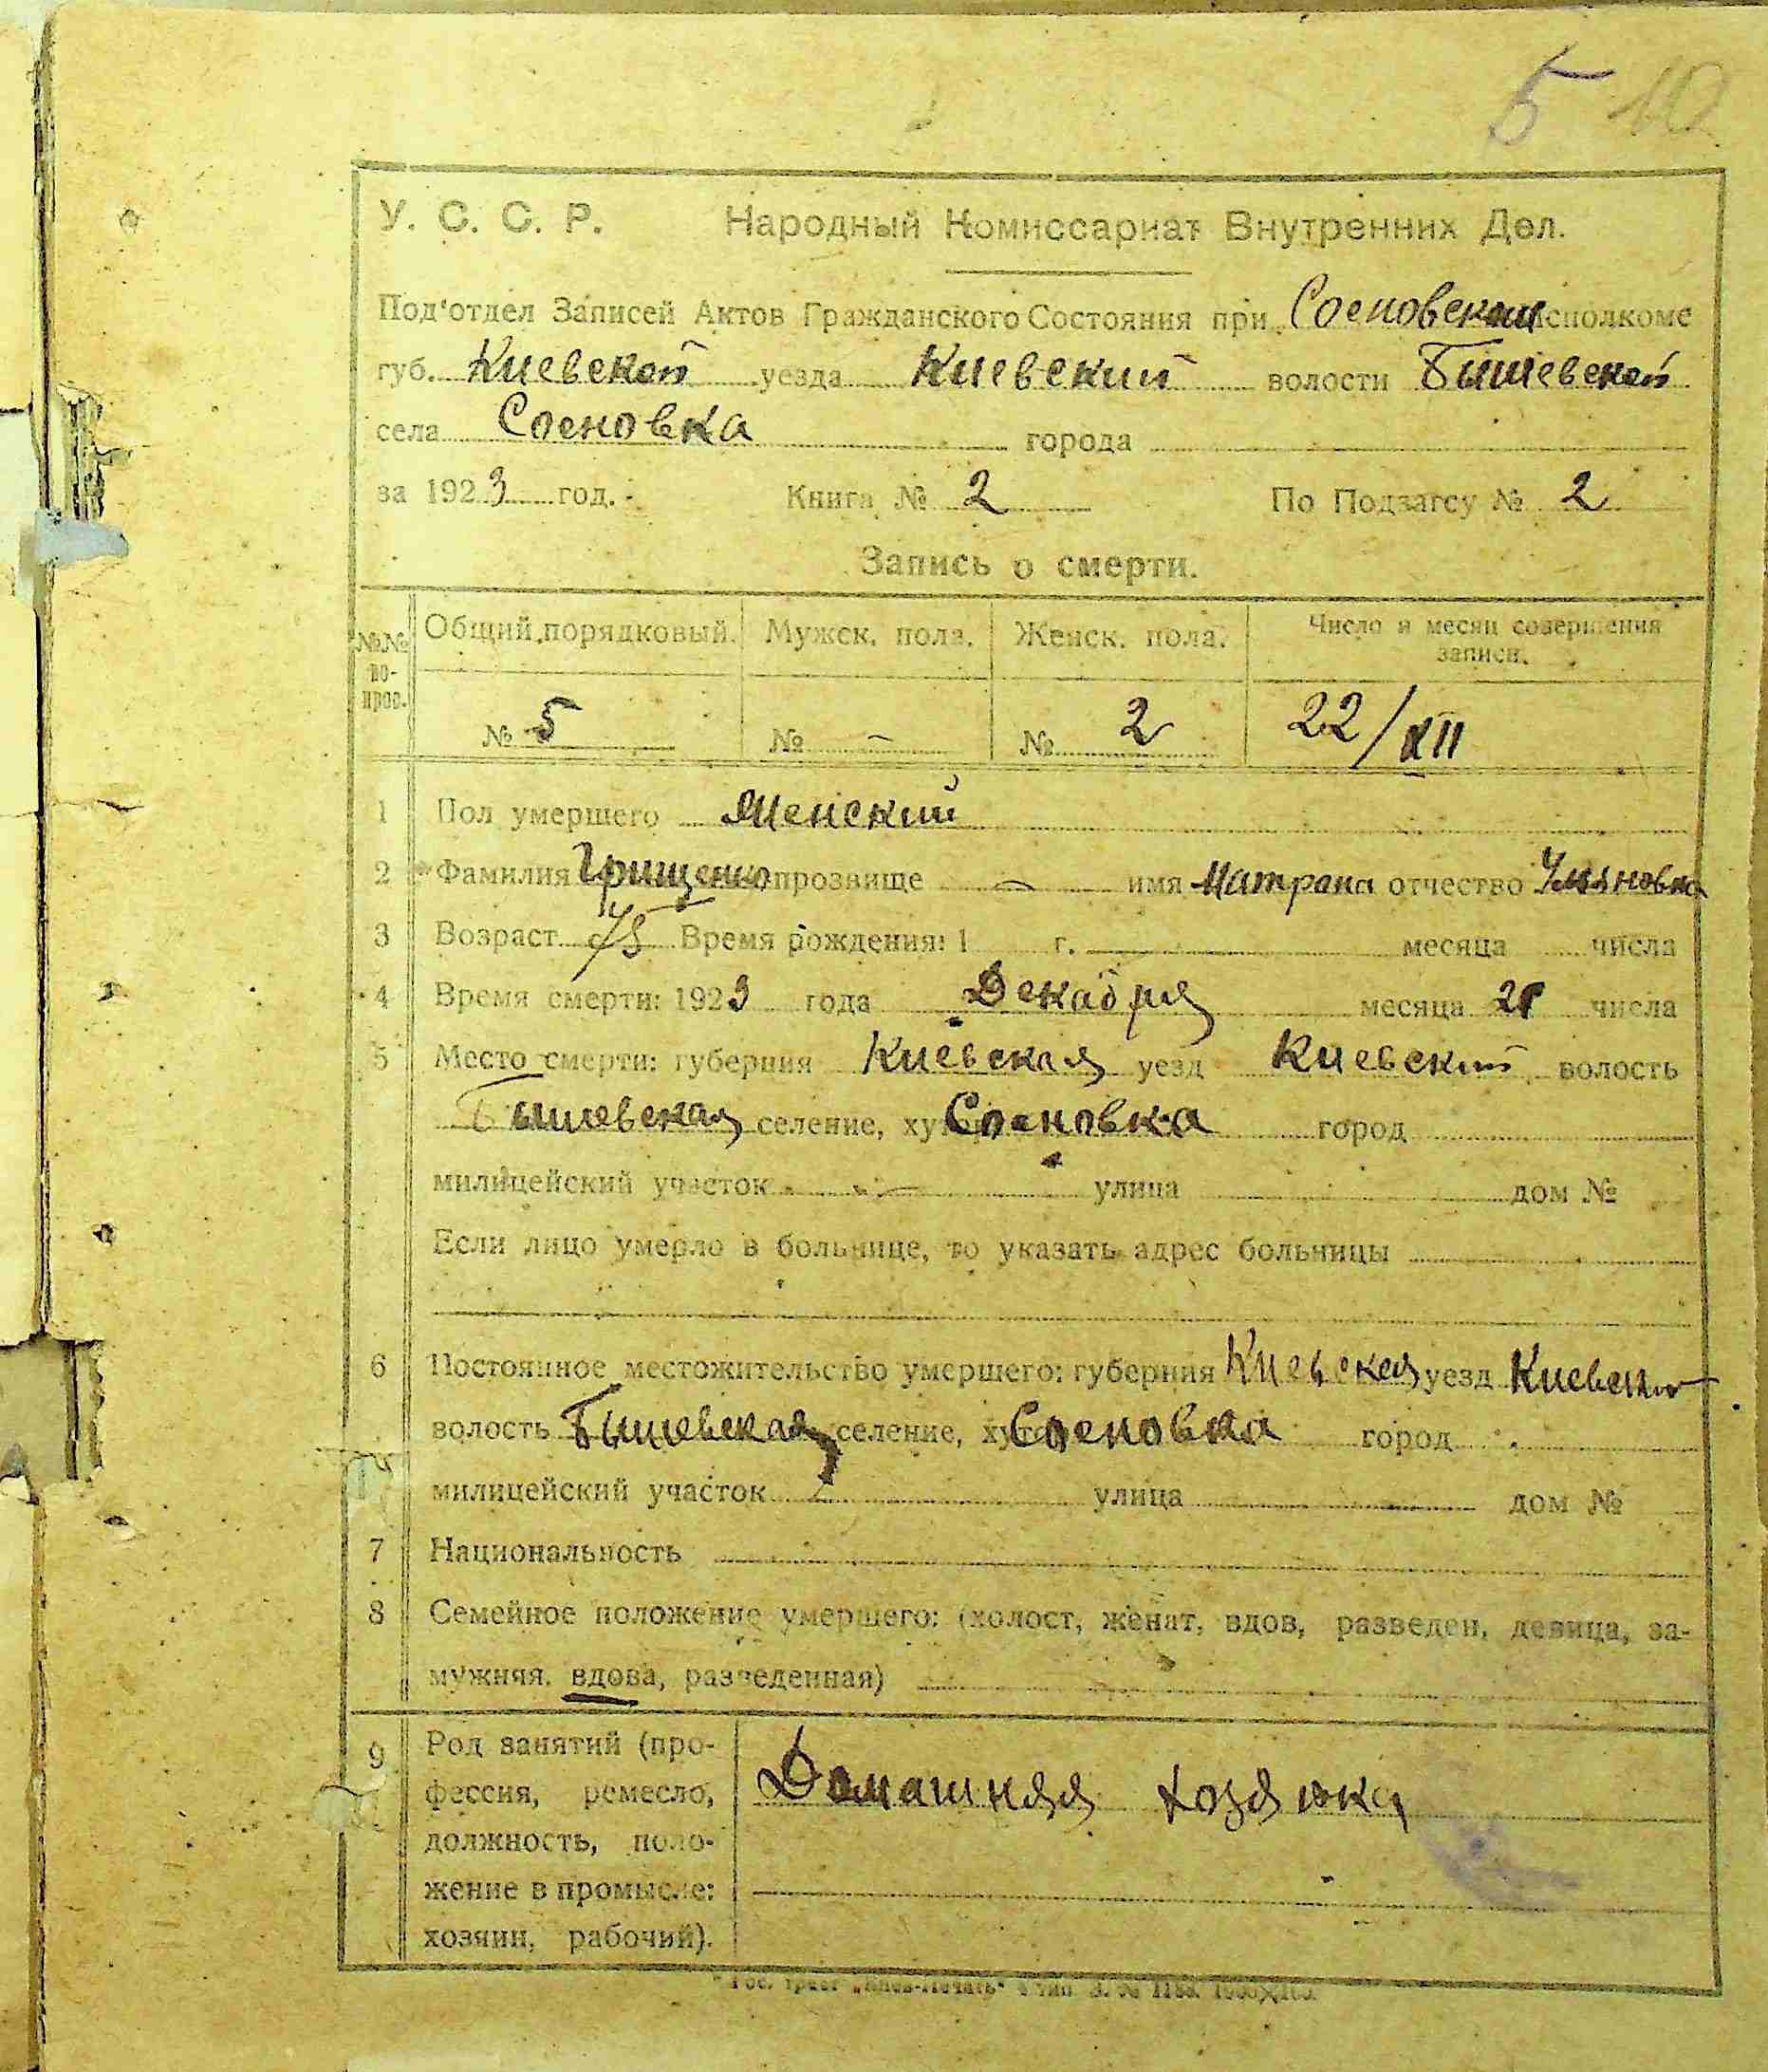 5 10
У. С. С. Р. Народный Комиссариат Внутренних Дел.
Под'отдел Записей Актов Гражданского Состояния при Сосновском исполкоме
губ. Киевской уезда Киевский волости Бышевской
села Сосновка города
за 1923 год. Книга № 2 По Подзагсу № 2
Запись о смерти.
№№ вопрос. Общий порядковый. Мужск. пола. Женск. пола. Число и месяц совершения записи.
№ 5 № – № 2 22/XII
1 Пол умершего Женский
2 Фамилия Грищенко прозвище – имя Матрана отчество Ульяновна
3 Возраст 75 Время рождения: 1 г. месяца числа
4 Время смерти: 1923 года Декабря месяца 21 числа
5 Место смерти: губерния Киевская уезд Киевский волость
Бышевская селение, хутор Сосновка город
милицейский участок улица дом №
Если лицо умерло в больнице, то указать адрес больницы
6 Постоянное местожительство умершего: губерния Киевская уезд Киевский
волость Бышевская селение, хутор Сосновка город
милицейский участок улица дом №
7 Национальность
8 Семейное положение умершего: (холост, женат, вдов, разведен, девица, за-
мужняя, вдова, разведенная)
9 Род занятий (про-
фессия, ремесло, Домашняя хозяюка
должность, поло-
жение в промысле:
хозяин, рабочий).
Гос. трест „Киев-Печать"